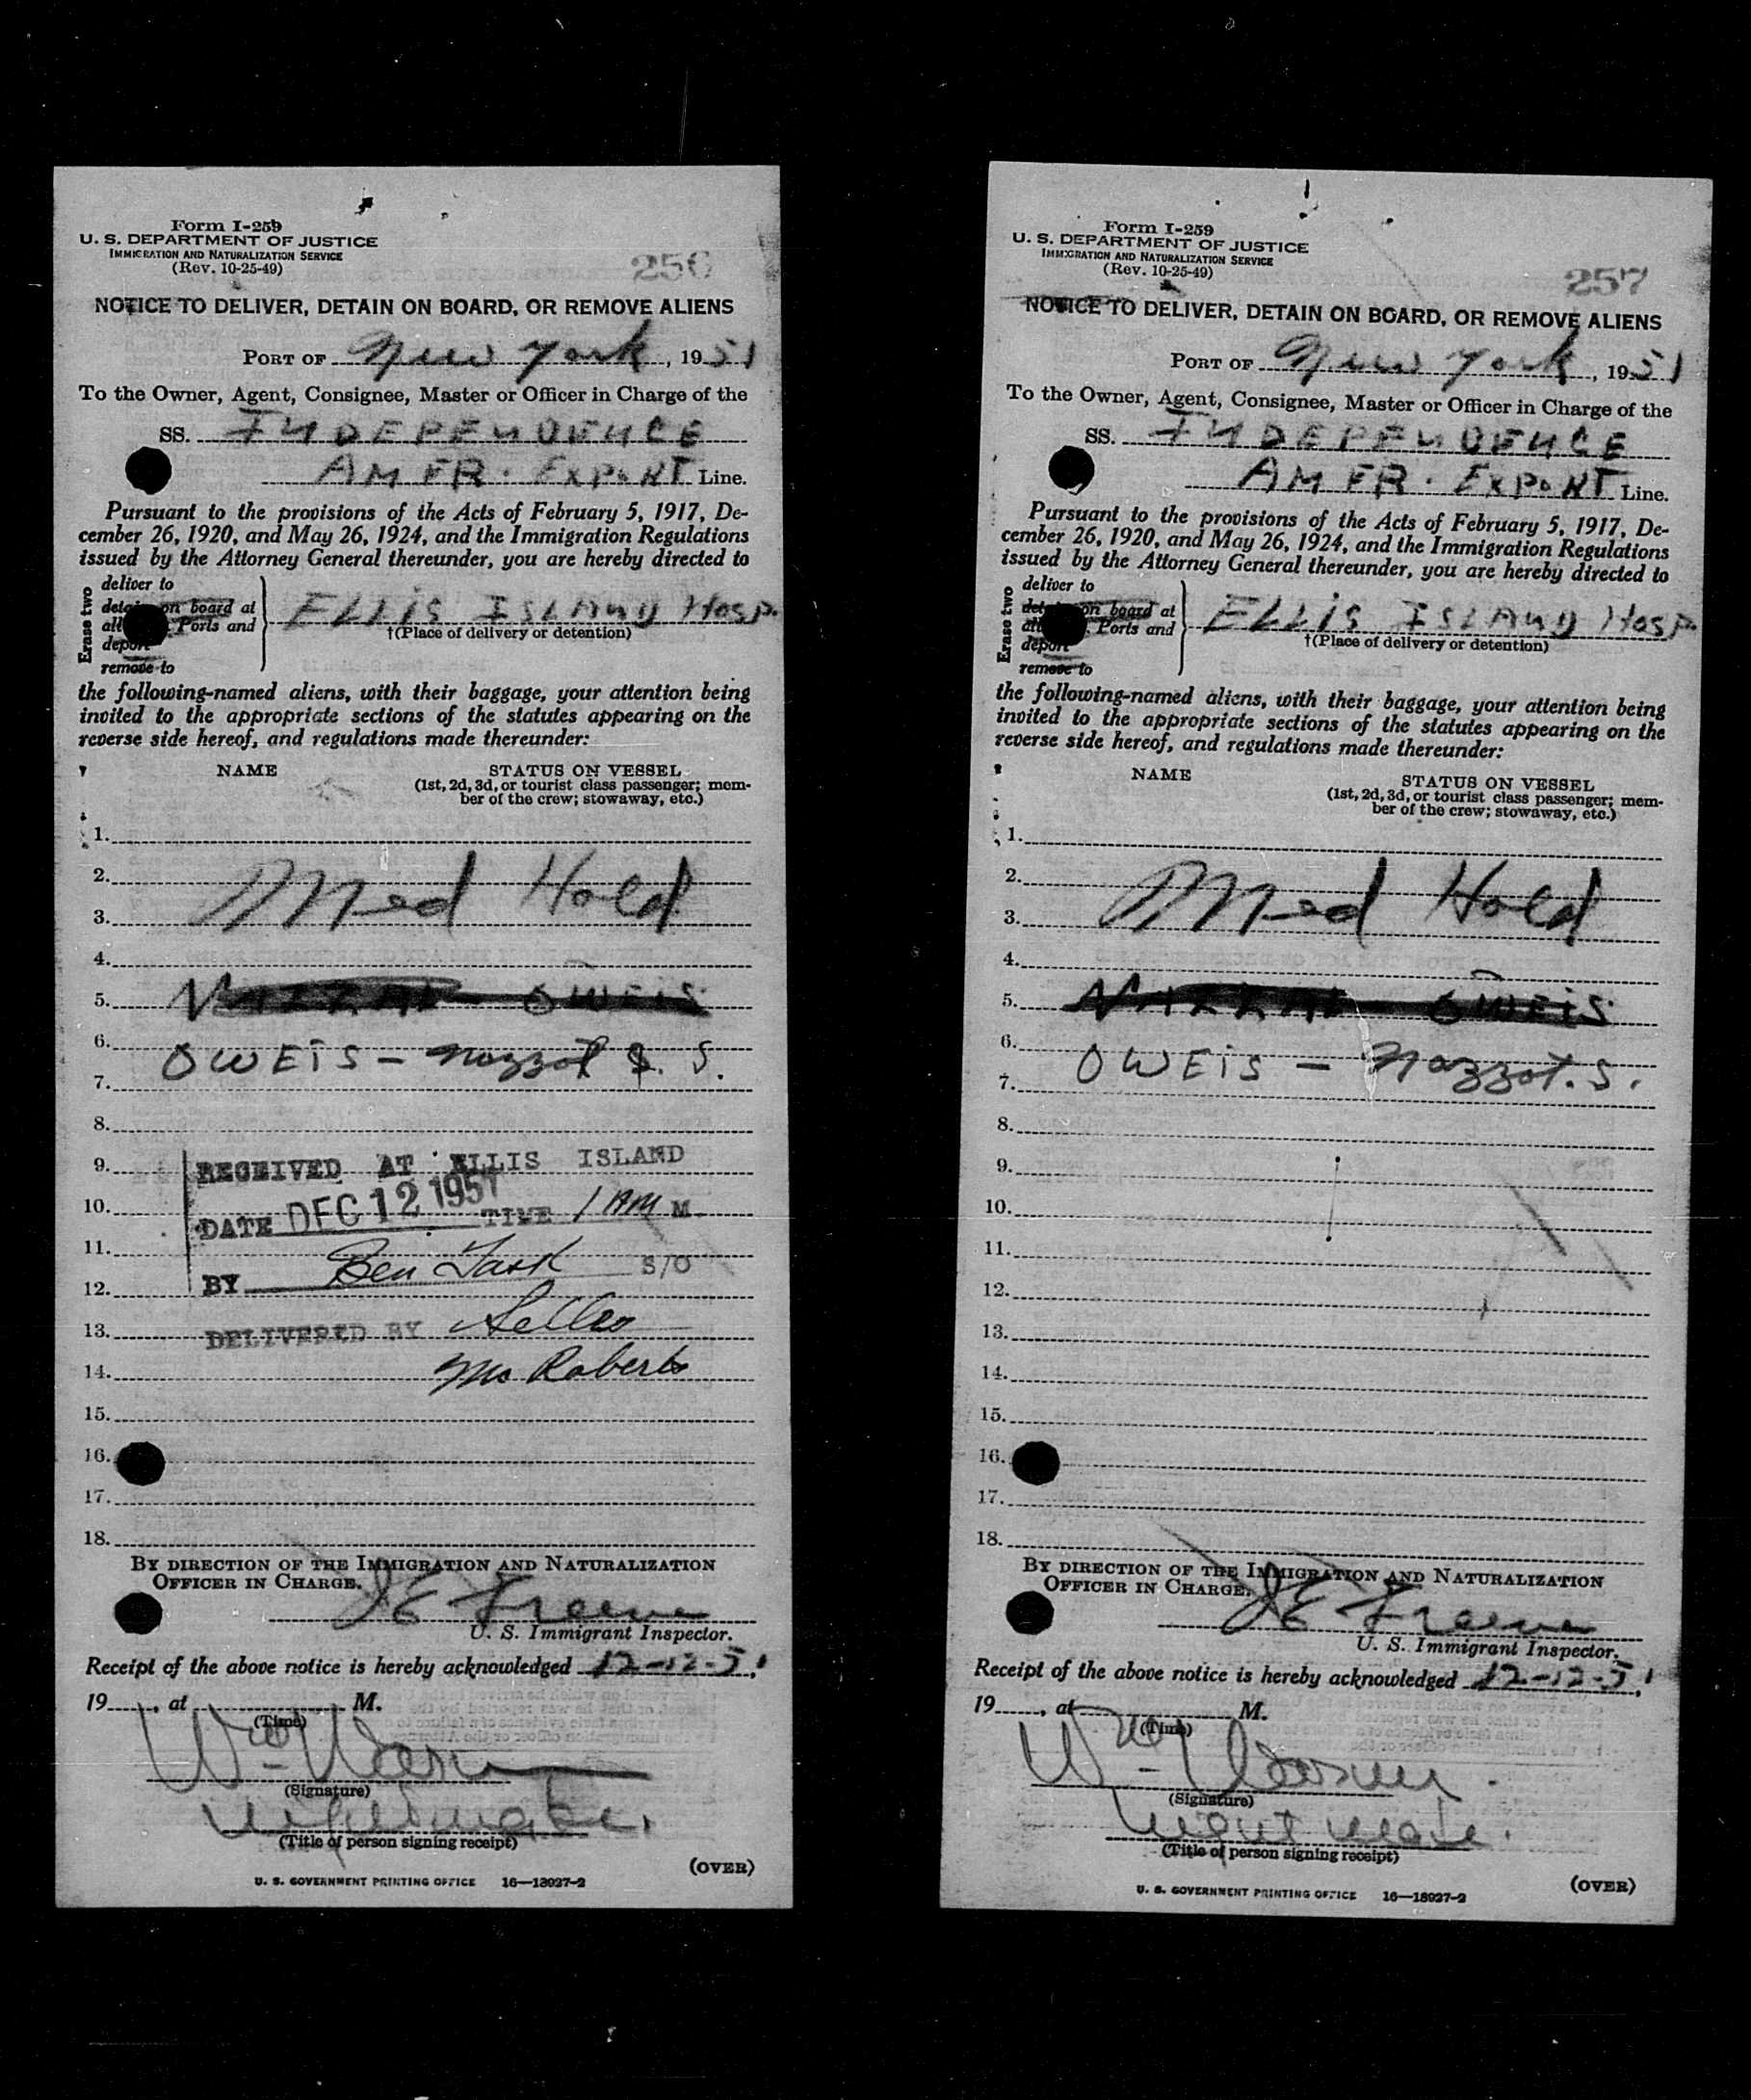 Form I-259
U. S. DEPARTMENT OF JUSTICE
IMMIGRATION AND NATURALIZATION SERVICE
(Rev. 10-25-49)
256
NOTICE TO DELIVER, DETAIN ON BOARD, OR REMOVE ALIENS
PORT OF New York, 1951
To the Owner, Agent, Consignee, Master or Officer in Charge of the
SS. INDEPENDENCE
AMER. EXPORT Line.
Pursuant to the provisions of the Acts of February 5, 1917, De-
cember 26, 1920, and May 26, 1924, and the Immigration Regulations
issued by the Attorney General thereunder, you are hereby directed to
Erase two
deliver to
detain on board at
all Ports and
deport
remove to
ELLIS ISLAND Hosp.
†(Place of delivery or detention)
the following-named aliens, with their baggage, your attention being
invited to the appropriate sections of the statutes appearing on the
reverse side hereof, and regulations made thereunder:
NAME STATUS ON VESSEL
(1st, 2d, 3d, or tourist class passenger; mem-
ber of the crew; stowaway, etc.)
1.
2.
Med Hold
3.
4.
5. OWEIS
6.
OWEIS - Nazzal S. S.
7.
8.
9. RECEIVED AT ELLIS ISLAND
10. DATE DEC 12 1951 TIME 1 AM M.
11.
BY Ben Task S/O
12.
13. DELIVERED BY
14. Roberts
15.
16.
17.
18.
BY DIRECTION OF THE IMMIGRATION AND NATURALIZATION
OFFICER IN CHARGE.
J E Greene
U. S. Immigrant Inspector.
Receipt of the above notice is hereby acknowledged 12-12-51,
19, at M.
(Time)
Wm
(Signature)
(Title of person signing receipt)
(OVER)
U. S. GOVERNMENT PRINTING OFFICE 16—18927-2
Form I-259
U. S. DEPARTMENT OF JUSTICE
IMMIGRATION AND NATURALIZATION SERVICE
(Rev. 10-25-49)
257
NOTICE TO DELIVER, DETAIN ON BOARD, OR REMOVE ALIENS
PORT OF New York, 1951
To the Owner, Agent, Consignee, Master or Officer in Charge of the
SS. INDEPENDENCE
AMER. EXPORT Line.
Pursuant to the provisions of the Acts of February 5, 1917, De-
cember 26, 1920, and May 26, 1924, and the Immigration Regulations
issued by the Attorney General thereunder, you are hereby directed to
Erase two
deliver to
detain on board at
all Ports and
deport
remove to
ELLIS ISLAND Hosp.
†(Place of delivery or detention)
the following-named aliens, with their baggage, your attention being
invited to the appropriate sections of the statutes appearing on the
reverse side hereof, and regulations made thereunder:
NAME STATUS ON VESSEL
(1st, 2d, 3d, or tourist class passenger; mem-
ber of the crew; stowaway, etc.)
1.
2.
Med Hold
3.
4.
5. OWEIS
6.
OWEIS - Nazzal. S.
7.
8.
9.
10.
11.
12.
13.
14.
15.
16.
17.
18.
BY DIRECTION OF THE IMMIGRATION AND NATURALIZATION
OFFICER IN CHARGE.
J E Greene
U. S. Immigrant Inspector.
Receipt of the above notice is hereby acknowledged 12-12-51,
19, at M.
(Time)
Wm
(Signature)
(Title of person signing receipt)
(OVER)
U. S. GOVERNMENT PRINTING OFFICE 16—18927-2